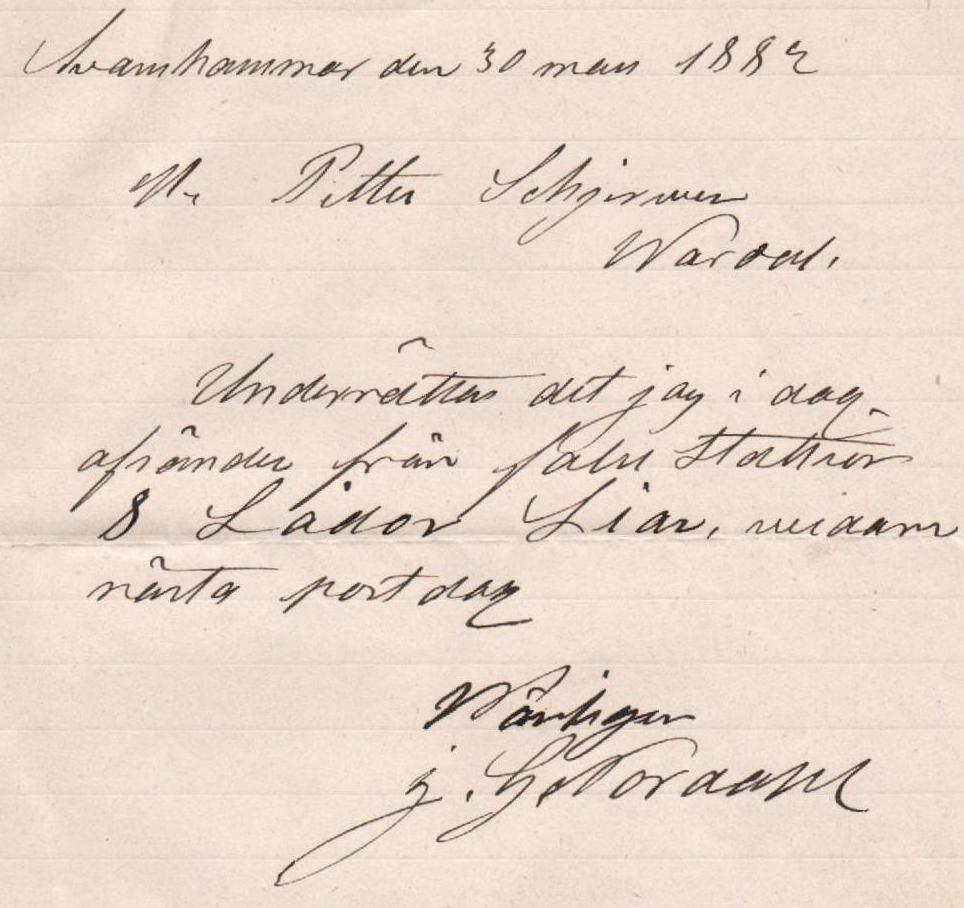 Svamhammar den 30 mars 1882
Mr Petter Schjerven
Wardal.
Underrättas det jag i dag
afsänder från falu Station
8 Lådor Liar, vidare
nästa postdag
Vänligen
J. G. Nordahl